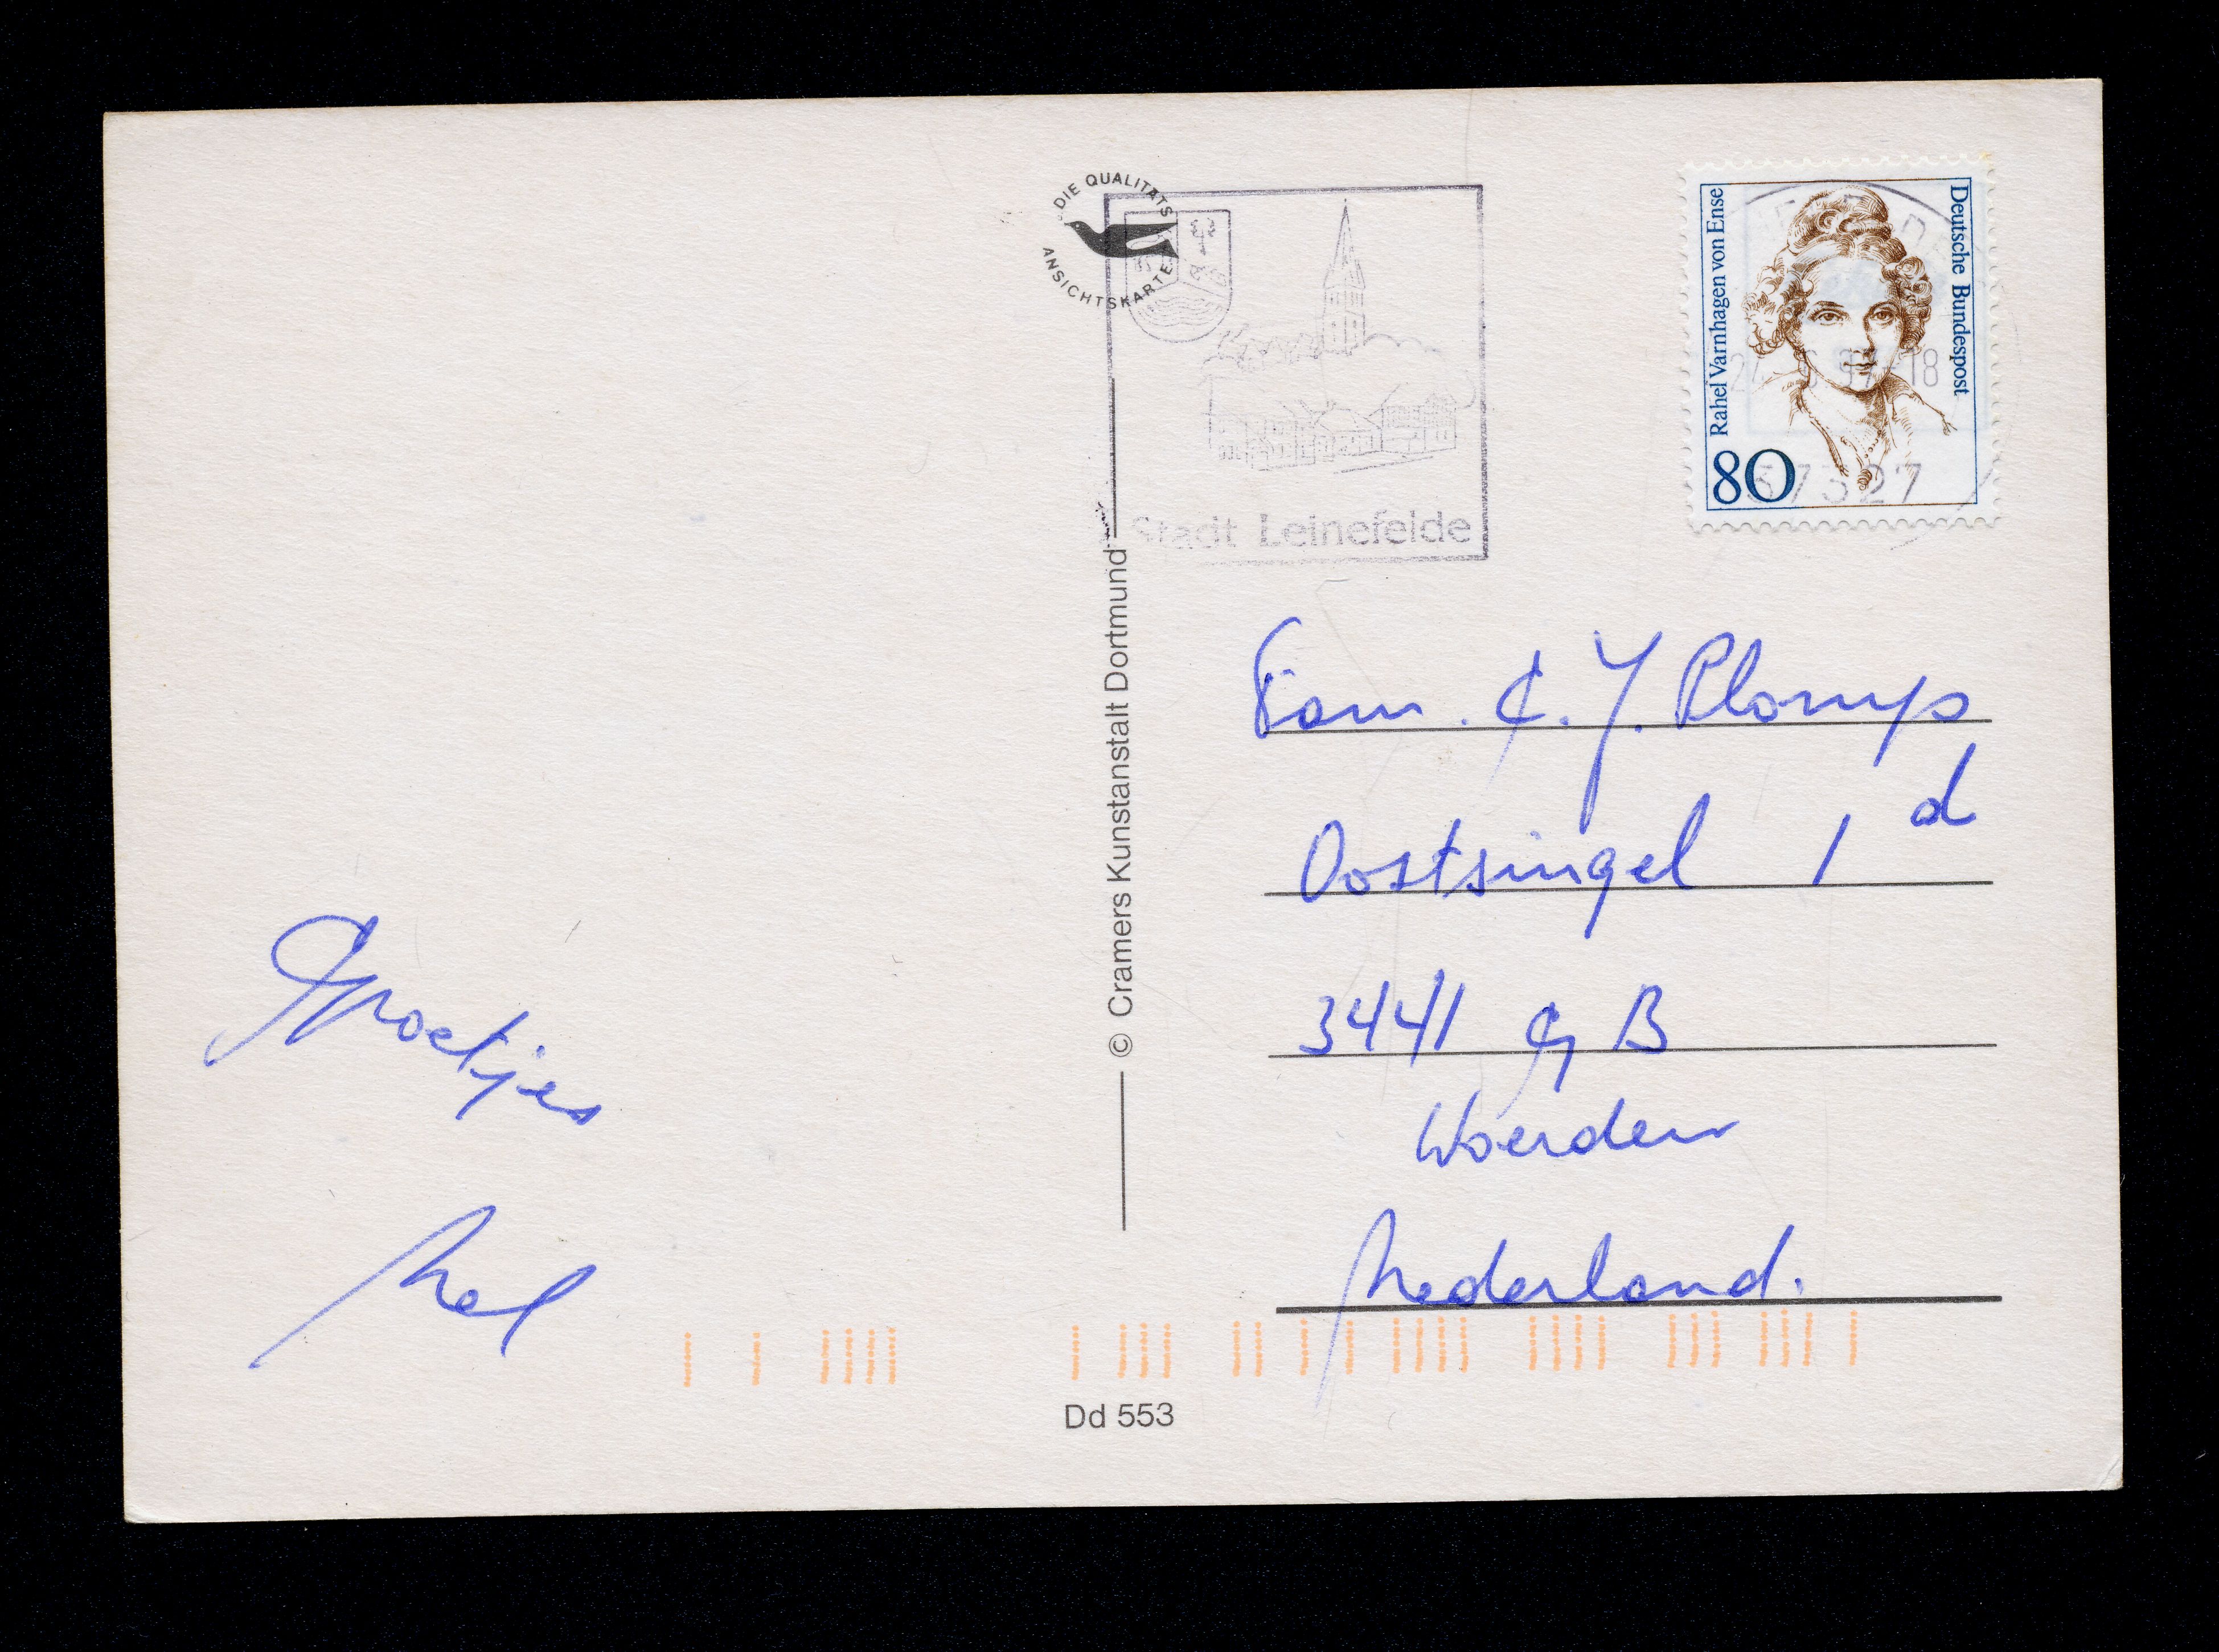 Groetjes
Nel
DIE QUALITÄTS
ANSICHTSKARTE
Stadt Leinefelde
© Cramers Kunstanstalt Dortmund
Rahel Varnhagen von Ense
Deutsche Bundespost
80
-18
37327
Fam. C. J. Plomp
Oostsingel 1 d
3441 GB
Woerden
Nederland.
Dd 553